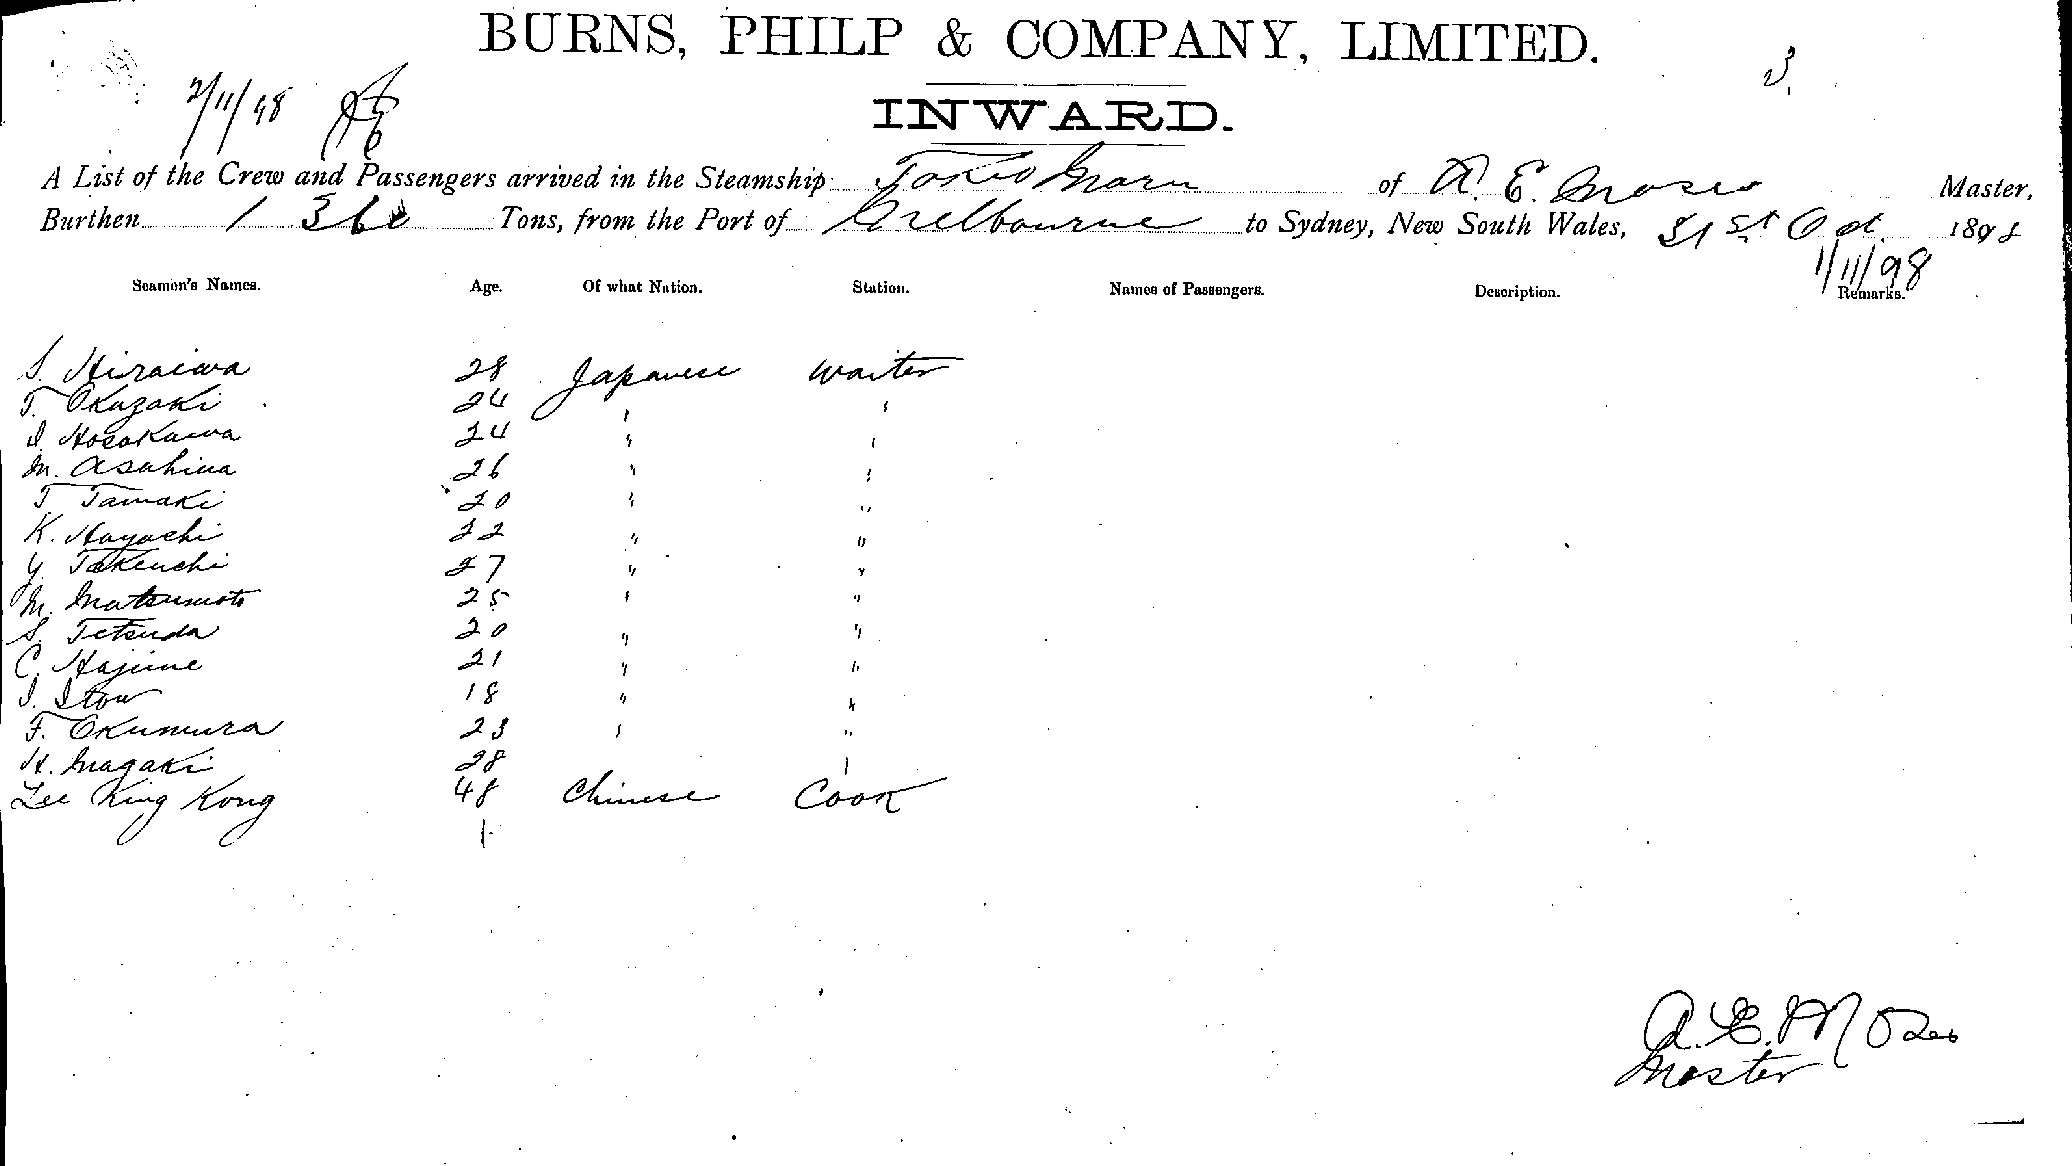 BURNS, PHILP & COMPANY, LIMITED.
3.
2/11/98
INWARD.
A List of the Crew and Passengers arrived in the Steamship Tokio Maru of A. E. Moses Master,
Burthen 1360 Tons, from the Port of Melbourne to Sydney, New South Wales, 31st Oct 1898
1/11/98
Seamen's Names. Age. Of what Nation. Station. Names of Passengers. Description. Remarks.
S. Hiraiwa 28 Japanese Waiter
T. Okazaki 24 " "
I. Hosokawa 24 " "
M. Asahina 26 " "
T. Tamaki 20 " "
K. Hayachi 22 " "
Y. Takeuchi 27 " "
M. Matsumoto 25 " "
S. Tetsuda 20 " "
C. Hajime 21 " "
I. Itow 18 " "
F. Okumura 23 " "
H. Magaki 28 "
Lee King Kong 48 Chinese Cook
A. E. Moses
Master